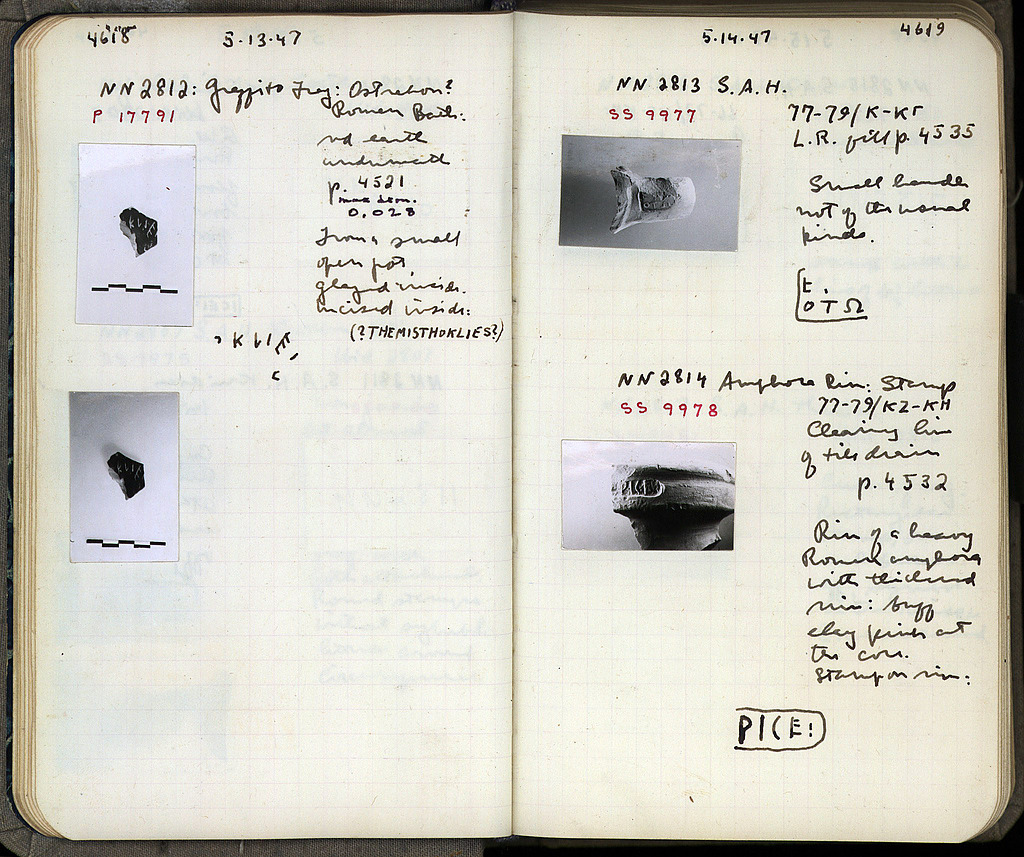 4618
5·13·47
NN 2812: Graffito Frag: Ostrakon?
P 17791
Roman Bath:
red earth
underneath
p. 4521
max dim.
0.028
From a small
open pot,
glazed inside.
Incised inside:
(?THEMISTHOKLIES?)
5·14·47
4619
NN 2813 S.A.H.
SS 9977
77-79/Κ-ΚΓ
L.R. fill p. 4535
Small handle
not of the usual
kinds.
Ε .
Ο Τ Ω
NN 2814 Amphora Rim: Stamp
SS 9978
77-79/ΚΖ-ΚΗ
Clearing line
of tile drain
p. 4532
Rim of a heavy
Roman amphora
with thickened
rim: buff
clay pink at
the core.
Stamp on rim:
PICE: